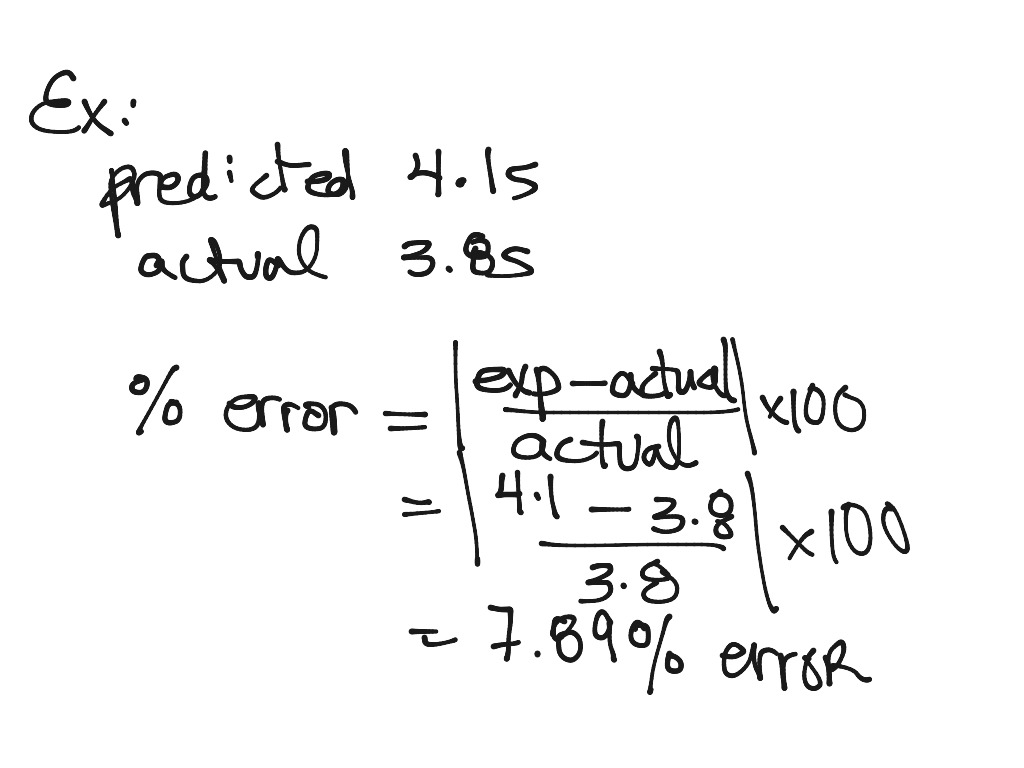 Ex:
predicted 4.1s
actual 3.8s
% error = |exp - actual / actual| x100
= |4.1 - 3.8 / 3.8| x100
= 7.89% error